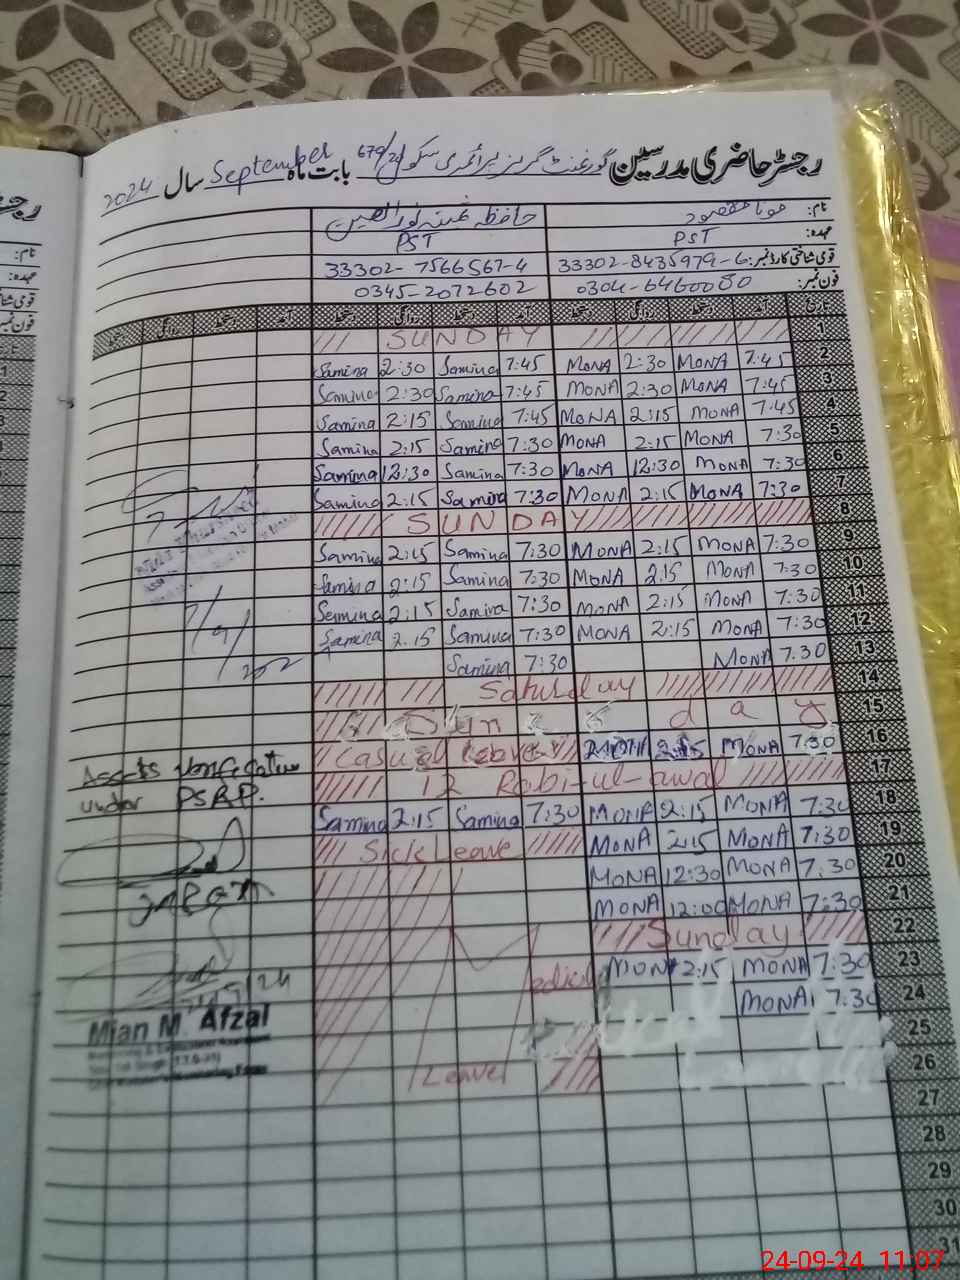 رجسٹر حاضری مدرسین گورنمنٹ گرلز پرائمری سکول 679/20 بابت ماہ September سال 2024
نام: مونا مقصود حافظہ
عہدہ: PST PST
قومی شناختی کارڈ نمبر: 33302-8435979-6 33302-7566567-4
فون نمبر: 0304-6460080 0345-2072602
تاریخ آمد دستخط روانگی دستخط آمد دستخط روانگی دستخط آمد دستخط روانگی دستخط
SUNDAY 1
Samina 2:30 Samina 7:45 MONA 2:30 MONA 7:45 2
Samina 2:30 Samina 7:45 MONA 2:30 MONA 7:45 3
Samina 2:15 Samina 7:45 MONA 2:15 MONA 7:45 4
Samina 2:15 Samina 7:30 MONA 2:15 MONA 7:30 5
Samina 12:30 Samina 7:30 MONA 12:30 MONA 7:30 6
Samina 2:15 Samina 7:30 MONA 2:15 MONA 7:30 7
SUNDAY 8
Samina 2:15 Samina 7:30 MONA 2:15 MONA 7:30 9
Samina 2:15 Samina 7:30 MONA 2:15 MONA 7:30 10
Samina 2:15 Samina 7:30 MONA 2:15 MONA 7:30 11
Samina 2:15 Samina 7:30 MONA 2:15 MONA 7:30 12
Samina 7:30 MONA 7:30 13
Saturday 14
Sun d a y 15
Casual Leave 2:15 MONA 7:30 16
12 Rabi-ul-awal 17
Samina 2:15 Samina 7:30 MONA 2:15 MONA 7:30 18
Sick Leave MONA 2:15 MONA 7:30 19
MONA 12:30 MONA 7:30 20
MONA 12:00 MONA 7:30 21
Sunday 22
MONA 2:15 MONA 7:30 23
MONA 7:30 24
25
Leave 26
27
28
29
30
31
Assets Verification
under PSRP.
Mian M. Afzal
24-09-24 11:07